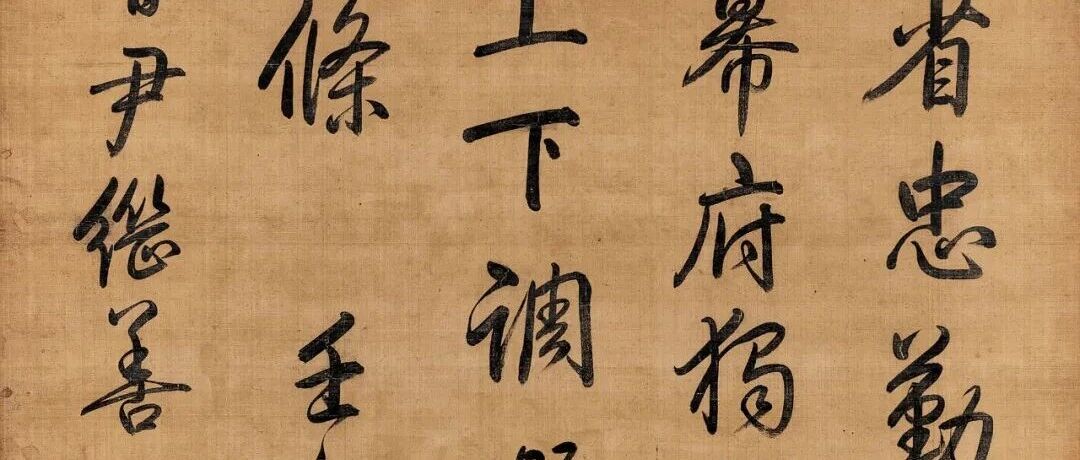 省忠勤
幕府獨
上下調
條壬
尹繼善